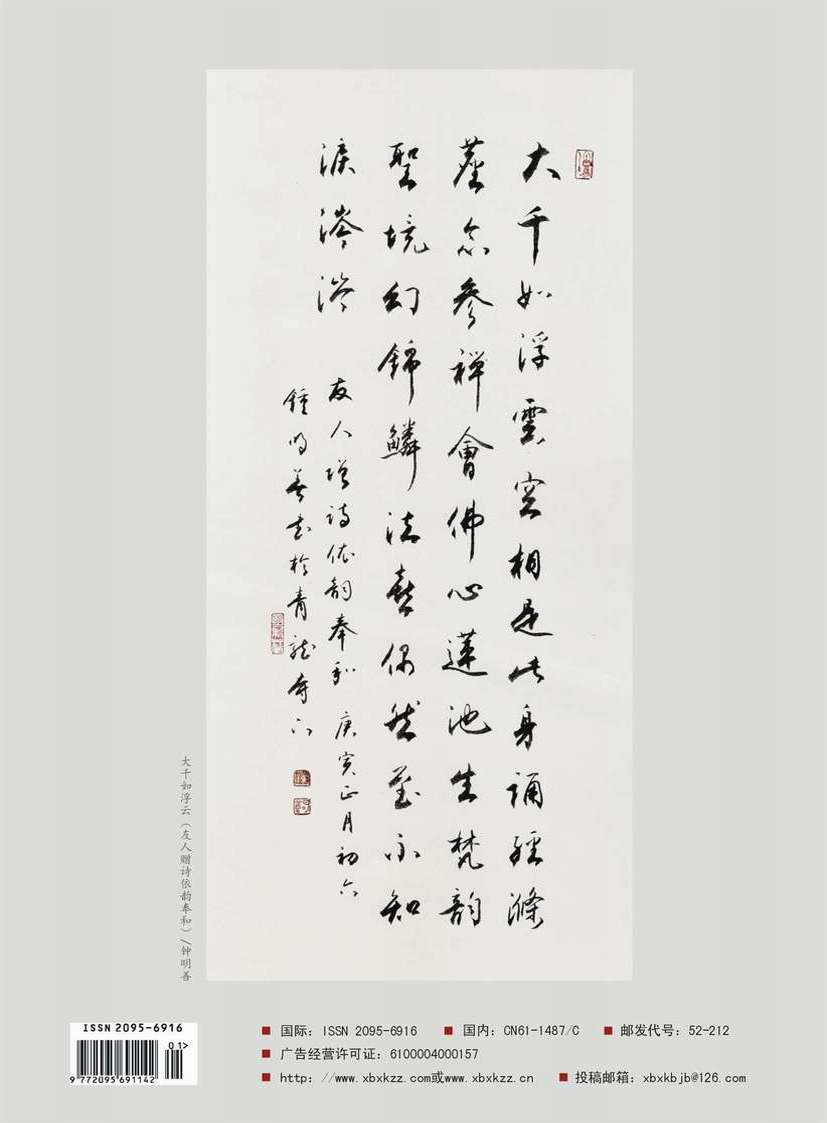 大千如浮雲空相是此身誦經滌
塵念參禪會佛心蓮池生梵韵
聖境幻錦鱗法喜偶然至不知
淚涔涔
友人增詩依韵奉和 庚寅正月初六
鍾明善书於青龍寺下
大千如浮云（友人赠诗依韵奉和）/钟明善
ISSN 2095-6916
01>
9 772095 691142
■ 国际：ISSN 2095-6916 ■ 国内：CN61-1487/C ■ 邮发代号：52-212
■ 广告经营许可证：6100004000157
■ http：//www.xbxkzz.com或www.xbxkzz.cn ■ 投稿邮箱：xbxkbjb@126.com